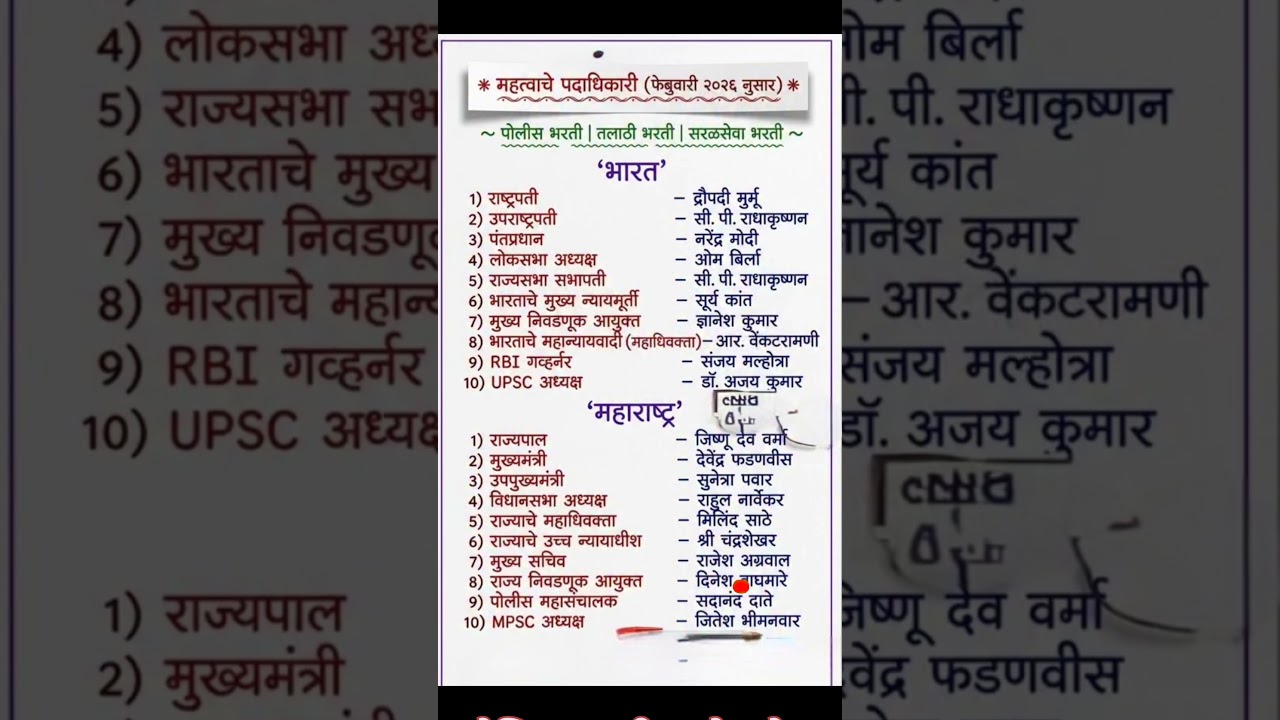 * महत्वाचे पदाधिकारी (फेबुवारी २०२६ नुसार) *
~ पोलीस भरती | तलाठी भरती | सरळसेवा भरती ~
‘भारत’
1) राष्ट्रपती – द्रौपदी मुर्मू
2) उपराष्ट्रपती – सी. पी. राधाकृष्णन
3) पंतप्रधान – नरेंद्र मोदी
4) लोकसभा अध्यक्ष – ओम बिर्ला
5) राज्यसभा सभापती – सी. पी. राधाकृष्णन
6) भारताचे मुख्य न्यायमूर्ती – सूर्य कांत
7) मुख्य निवडणूक आयुक्त – ज्ञानेश कुमार
8) भारताचे महान्यायवादी (महाधिवक्ता) – आर. वेंकटरामणी
9) RBI गव्हर्नर – संजय मल्होत्रा
10) UPSC अध्यक्ष – डॉ. अजय कुमार
‘महाराष्ट्र’
1) राज्यपाल – जिष्णू देव वर्मा
2) मुख्यमंत्री – देवेंद्र फडणवीस
3) उपपुख्यमंत्री – सुनेत्रा पवार
4) विधानसभा अध्यक्ष – राहुल नार्वेकर
5) राज्याचे महाधिवक्ता – मिलिंद साठे
6) राज्याचे उच्च न्यायाधीश – श्री चंद्रशेखर
7) मुख्य सचिव – राजेश अग्रवाल
8) राज्य निवडणूक आयुक्त – दिनेश
9) पोलीस महासंचालक – सदानंद दाते
10) MPSC अध्यक्ष – जितेश भीमनवार